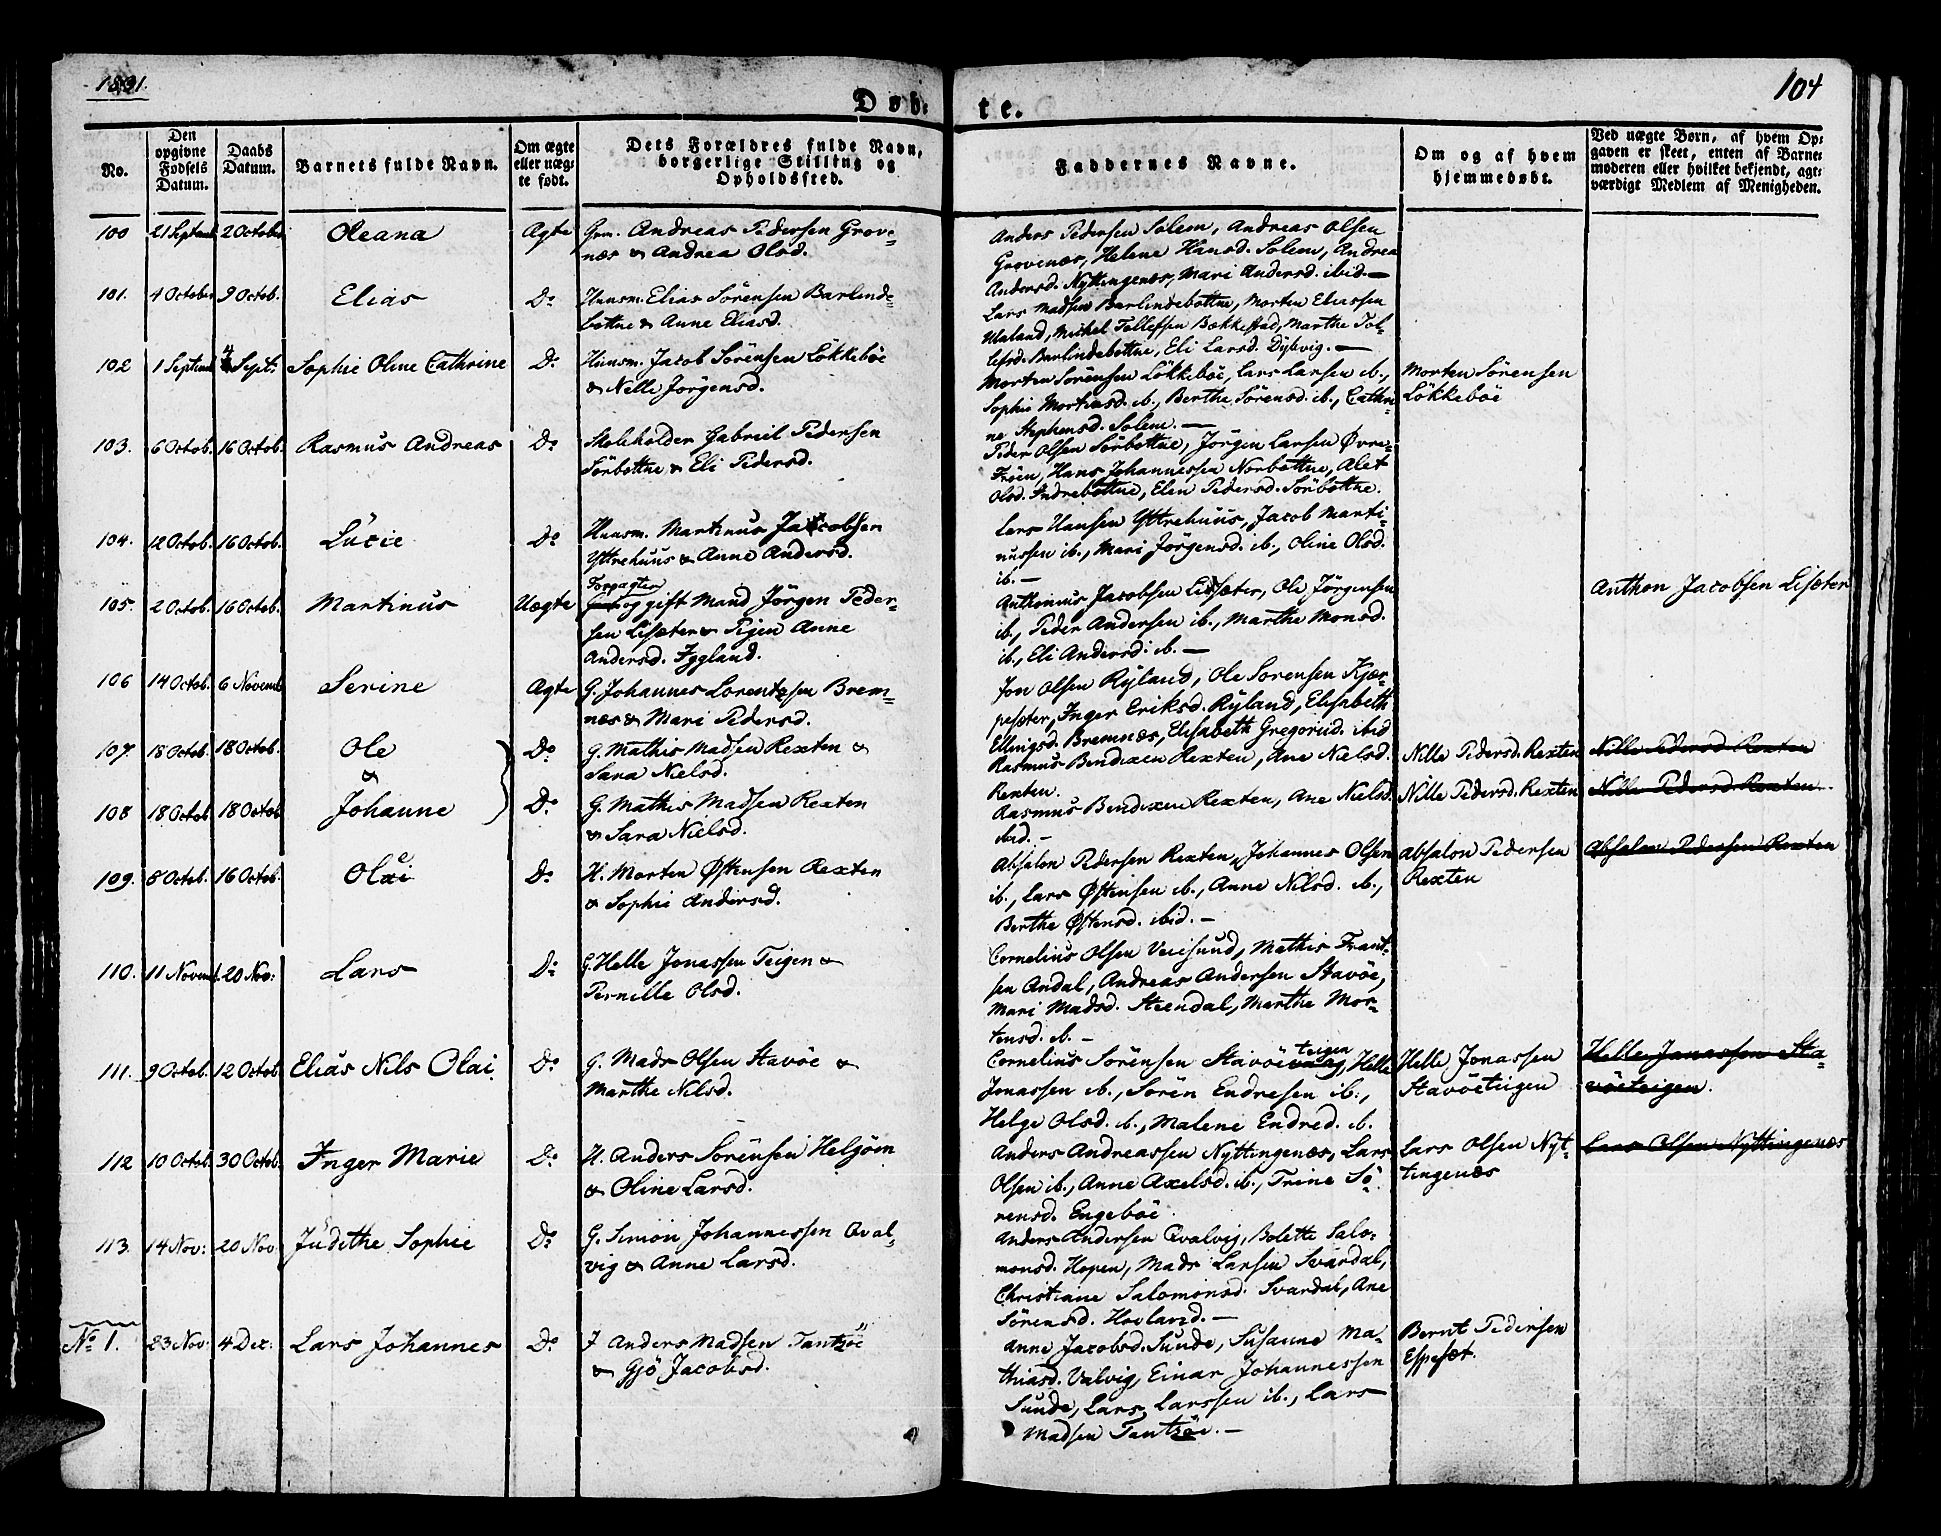 1831.
104
Døb-
te.
No.
Den opgivne Fødsels Datum.
Daabs Datum.
Barnets fulde Navn.
Om ægte eller uægte født.
Dets Forældres fulde Navn, borgerlige Stilling og Opholdssted.
Faddernes Navne.
Om og af hvem hjemmedøbt.
Ved uægte Børn, af hvem Opgaven er skeet, enten af Barnemoderen eller hvilket bekjendt, agtværdigt Medlem af Menigheden.
100 21 Septemb. 2 October Oleana Ægte Grm. Andreas Pedersen Grove-
næs & Andrea Olsd.
Anders Pedersen Solem, Andreas Olsen
Grovenæs, Helene Hansd. Solem, Andrea
Andersd. Nyttingenæs, Mari Andersd. ibid. —
101. 4 October 9 Octob. Elias Do. Huusm. Elias Sörensen Barlinde-
bottne & Anne Eliasd.
Lars Madsen Barlindebottne, Morten Eliassen
Uland, Michel Tollefsen Bækkestad, Marthe Tol-
lefsd. Barlindebottne, Eli Larsd. Dybvig. —
102 1 Septemb. 4 Sept: Sophie Oline Cathrine Do. Huusm. Jacob Sörensen Lökkeböe
& Nelle Jörgensd.
Morten Sörensen Lökkeböe, Lars Larsen ib.,
Sophie Mortensd. ib., Berthe Sörensd. ib., Cathri-
ne Stephensd. Solem. —
Morten Sörensen
Lökkeböe
103. 6 Octob. 16 Octob. Rasmus Andreas Do. Skoleholder Gabriel Pedersen
Sörbottne & Eli Pedersd.
Peder Olsen Sörbottne, Jörgen Larsen Øvre-
Fröen, Hans Johannessen Norbottne, Alet
Olsd. Indrebottne, Elen Pedersd. Sörbottne.
104. 12 Octob. 16 Octob. Lucie Do. Huusm. Martinus Jacobsen
Yttrehuus & Anne Andersd.
Lars Hansen Yttrehuus, Jacob Marti-
nussen ib., Mari Jörgensd. ib., Oline Olsd.
ib. —
105. 2 Octob. 16 Octob. Martinus Uægte Forpagter
og gift Mand Jörgen Peder-
sen Lisæter & Pigen Anne
Andersd. Iggland.
Anthonius Jacobsen Lisæter, Ole Jörgensen
ib., Peder Andersen ib., Marthe Monsd.
ib., Eli Andersd: ib. —
Anthon Jacobsen Lisæter
106 14 Octob. 6 Novemb. Serine Ægte G. Johannes Lorentzsen Brem-
næs & Mari Pedersd.
Jon Olsen Ryland, Ole Sörensen Kjær-
pesæter, Inger Eriksd. Ryland, Elisabeth
Ellingsd. Bremnæs, Elisabeth Gregoriid. ibid
107. 18 Octob. 18 Octob. Ole Do. G. Mathis Madsen Rexten &
Sara Nielsd.
Rasmus Bendixen Rexten, Ane Nielsd.
Rexten.
Nille Pedersd. Rexten
Nille Pedersd. Rexten
&
108 18 Octob. 18 Octob. Johanne Do. G. Mathis Madsen Rexten
& Sara Nielsd.
Rasmus Bendixen Rexten, Ane Nielsd.
ibid. —
Nille Pedersd. Rexten
Nille Pedersd. Rexten.
109. 8 Octob. 16 Octob. Do. H. Morten Østensen Rexten
& Sophie Andersd.
Absalon Pedersen Rexten, Johannes Olsen
ib., Lars Østensen ib., Anne Nilsd. ib.,
Berthe Østensd. ibid. —
Absalon Pedersen
Rexten
Absalon Pedersen Rexten
110. 11 Novemb. 20 Nov: Lars Do. G. Helle Jonassen Teigen &
Pernille Olsd.
Cornelius Olsen Veiesund, Mathis Frant-
sen Andal, Andreas Andersen Stavöe,
Mari Madsd. Steendal, Marthe Mor-
tensd. ib. —
111. 9 Octob. 12 Octob. Elias Nils Olai. Do. G. Mads Olsen Stavöe &
Marthe Nilsd.
Cornelius Sörensen Stavöeteigen, Helle
Jonassen ib., Sören Endresen ib.,
Helge Olsd. ib., Malene Endred. ib.
Helle Jonassen
Stavöeteigen
Helle Jonassen Sta-
vöeteigen.
112 10 Octob. 30 Octob. Inger Marie Do. H. Anders Sörensen Helgöen
& Oline Larsd.
Anders Andreassen Nyttingenæs, Lars
Olsen ib., Anne Axelsd. ib., Trine Sö-
rensd. Engeböe.
Lars Olsen Nyt-
tingenæs
Lars Olsen Nyttingenæs
113. 14 Nov: 20 Nov. Judithe Sophie Do. G. Simon Johannessen Qval-
vig & Anne Larsd.
Anders Andersen Qvalvig, Bolette Salo-
monsd. Hopen, Mads Larsen Svardal,
Christiane Salomonsd. Svardal, Ane
Sörensd. Hovland. —
No. 1. 23 Nov: 4 Dec: Lars Johannes Do. J Anders Madsen Tantzöe
& Gjö Jacobsd.
Anne Jacobsd. Sunde, Susanne Ma-
thiasd. Valvig, Einar Johannessen
Sunde, Lars Larssen ib., Lars
Madsen Tantzöe. —
Bernt Pedersen
Espesæt.